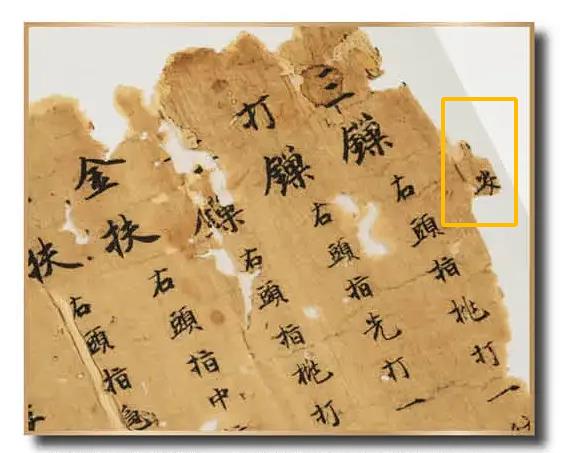 三鏁右頭指挑打一
打鏁右頭指先打一
鏁右頭指挑打
金扶右頭指中
扶右頭指急